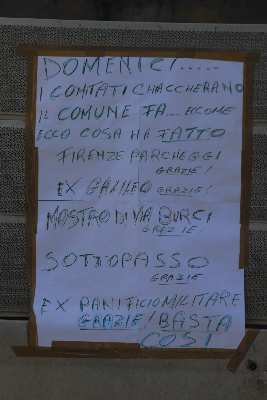 DOMENICI.....
I COMITATI CHIACCHERANO
IL COMUNE FA.... ECCOME
ECCO COSA HA FATTO
FIRENZE PARCHEGGI
GRAZIE!
EX GALILEO GRAZIE!
MOSTRO DI VIA BURCI
GRAZIE
SOTTOPASSO
GRAZIE
EX PANIFICIO MILITARE
GRAZIE! BASTA
COSÌ